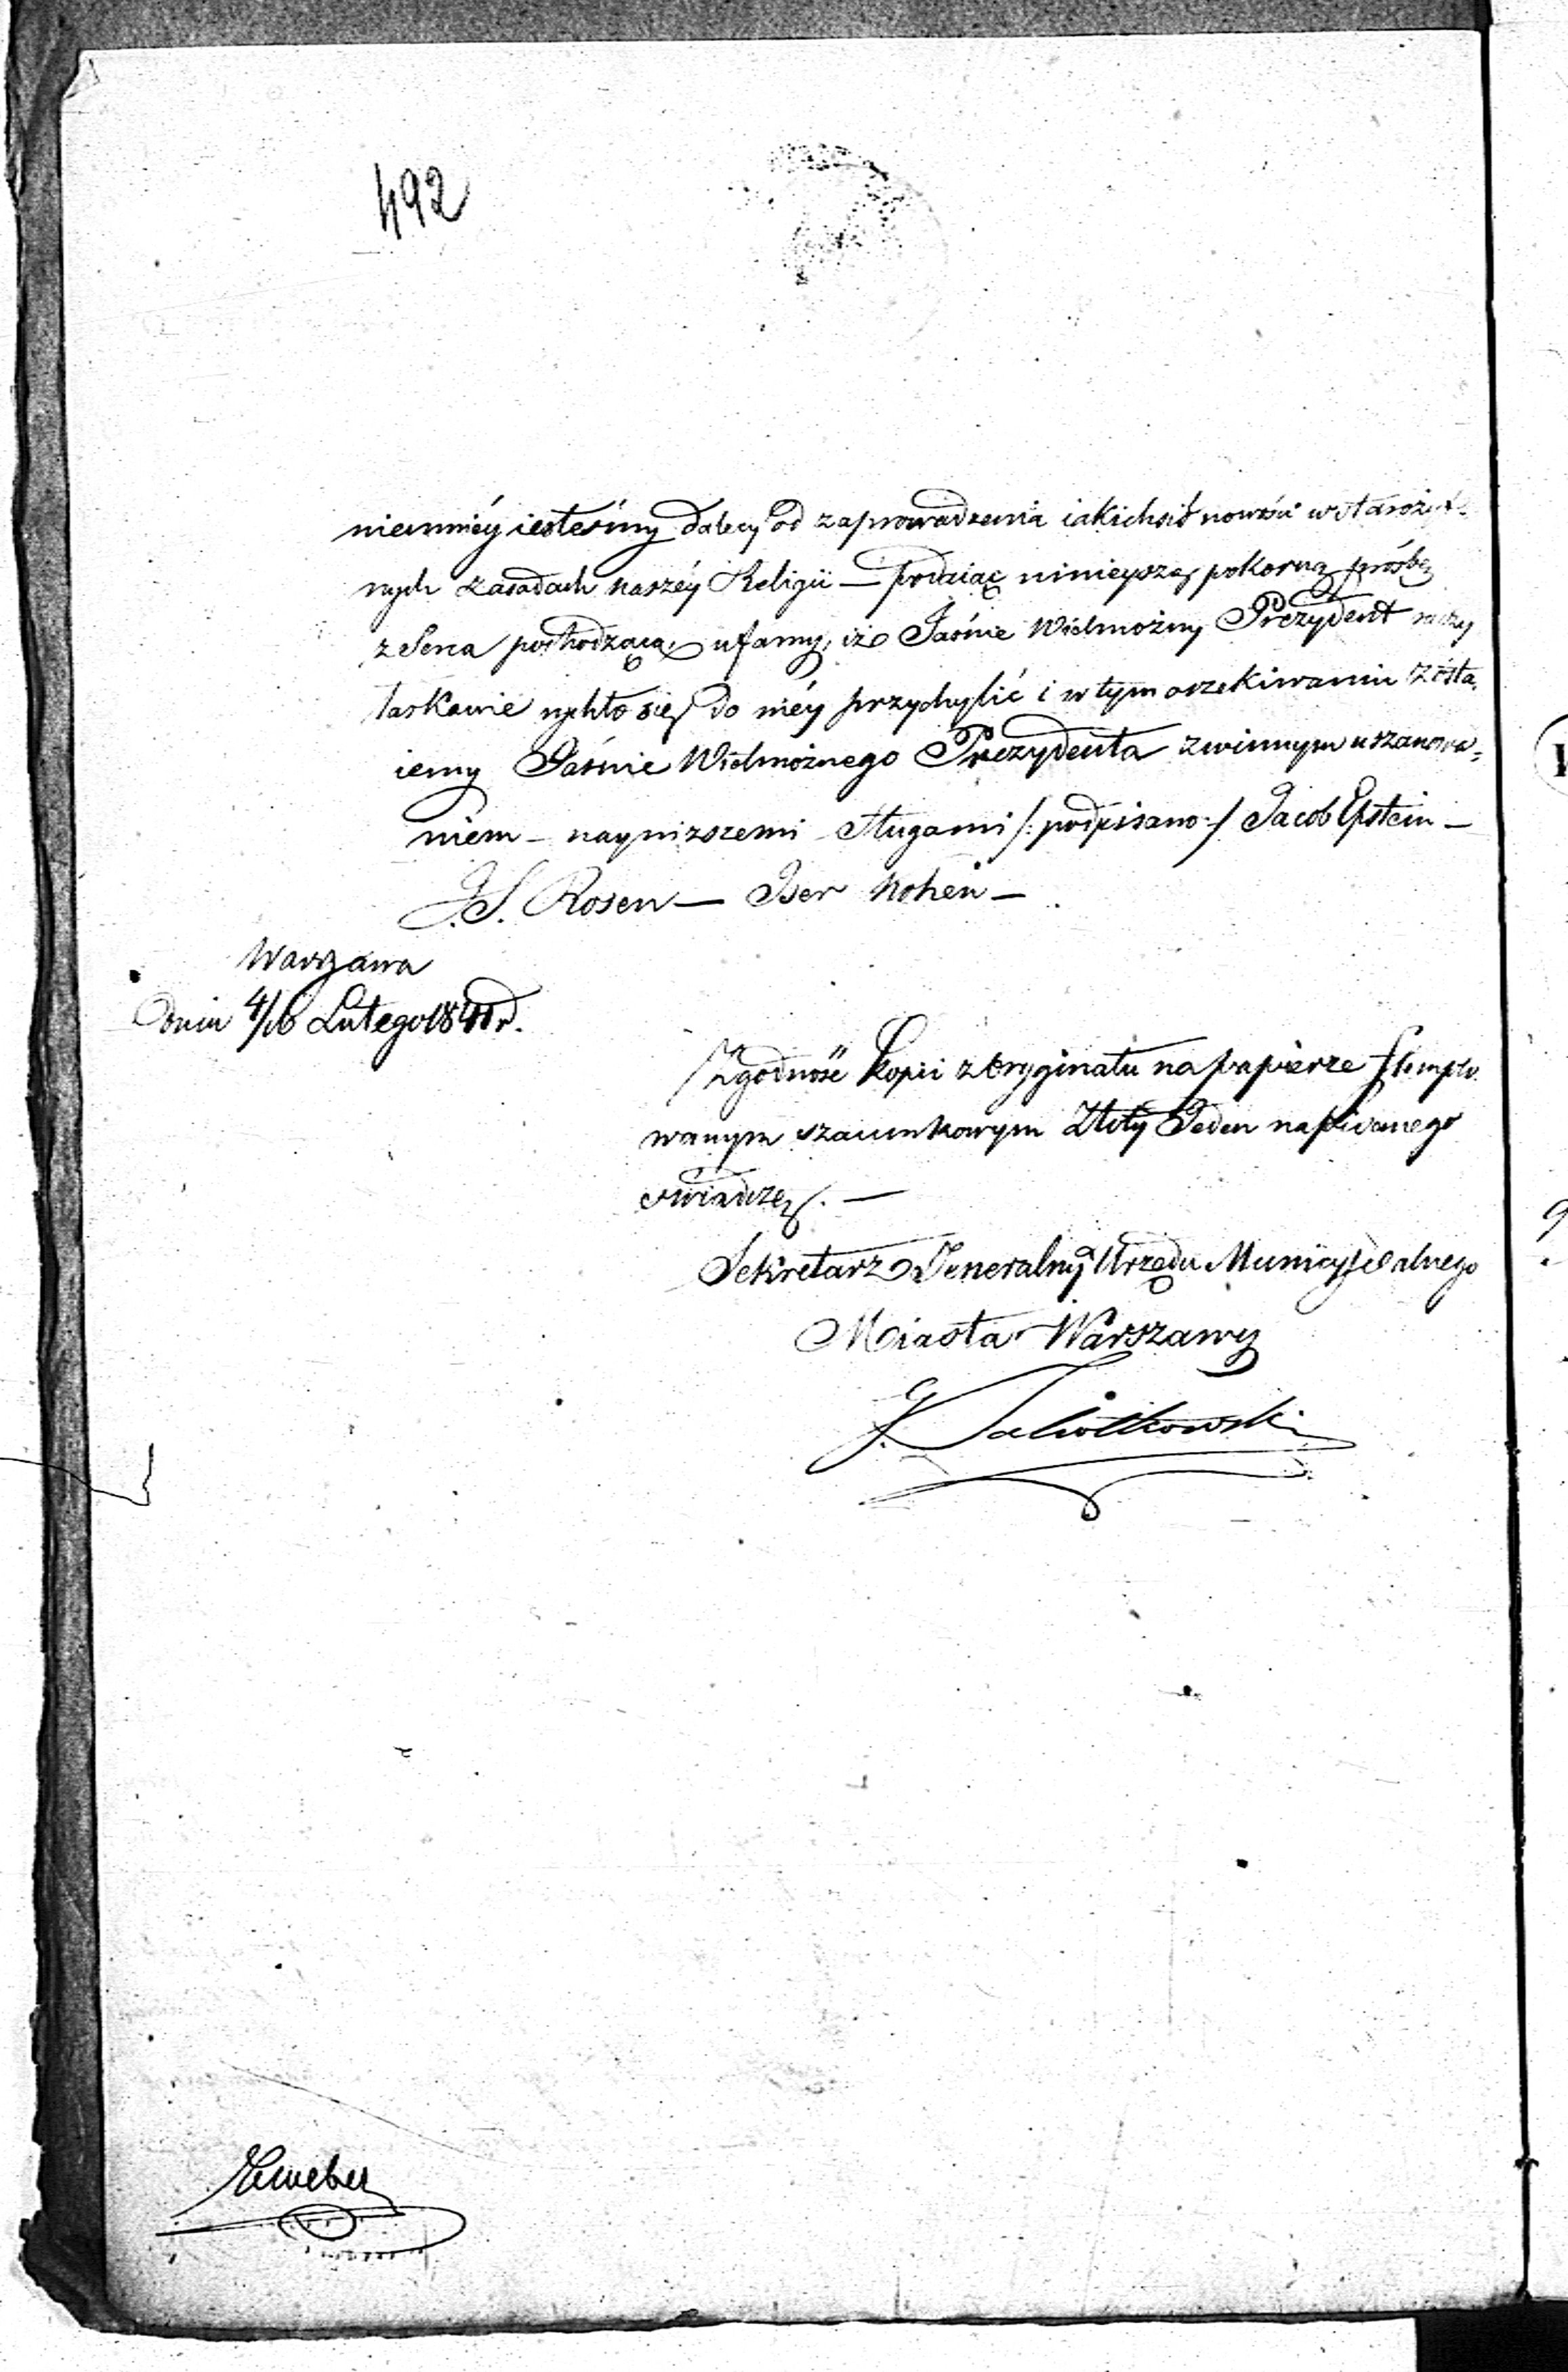 492
niemniéy iesteśmy dalecy od zaprowadzenia iakichsiś nowości w starożyt-
nych zasadach naszéy Religii — podaiąc ninieyszą pokorną prośbę
z serca pochodzącą, ufamy, iż Jaśnie Wielmożny Prezydent raczy
łaskawie rychło się do niéy przychylić i w tym oczekiwaniu zosta,
iemy Jaśnie Wielmożnego Prezydenta z winnym uszanowa-
niem — nayniższemi sługami /: podpisano :/ Jacob Epstein —
J. S. Rosen — Iser Kohen —
Warszawa
dnia 4/16 Lutego 1841 r.
Zgodność kopii z oryginału na papierze stemplo-
wanym szacunkowym Złoty Jeden napisanego
świadczę. —
Sekretarz Jeneralny Urzędu Municypalnego
Miasta Warszawy